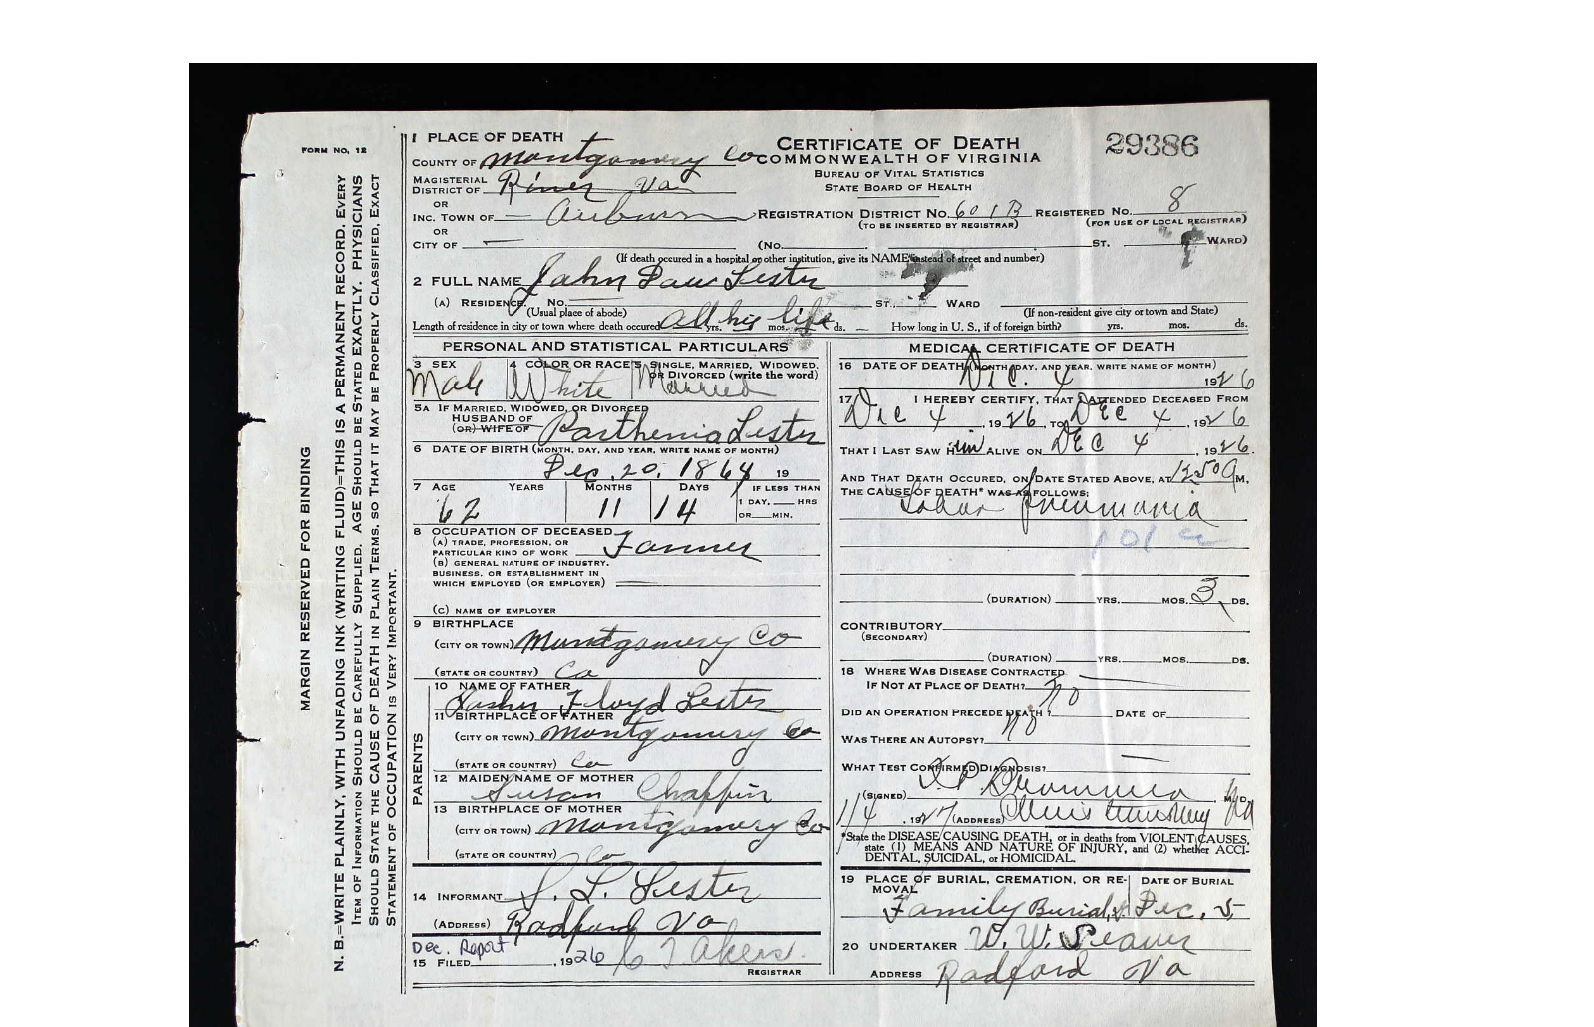 FORM NO. 12
MARGIN RESERVED FOR BINDING
N. B.=WRITE PLAINLY, WITH UNFADING INK (WRITING FLUID)=THIS IS A PERMANENT RECORD. EVERY
ITEM OF INFORMATION SHOULD BE CAREFULLY SUPPLIED. AGE SHOULD BE STATED EXACTLY. PHYSICIANS
SHOULD STATE THE CAUSE OF DEATH IN PLAIN TERMS, SO THAT IT MAY BE PROPERLY CLASSIFIED. EXACT
STATEMENT OF OCCUPATION IS VERY IMPORTANT.
1 PLACE OF DEATH
COUNTY OF Montgomery Co
MAGISTERIAL DISTRICT OF Riner Va
OR
INC. TOWN OF — Auburn
OR
CITY OF —
CERTIFICATE OF DEATH
COMMONWEALTH OF VIRGINIA
BUREAU OF VITAL STATISTICS
STATE BOARD OF HEALTH
29386
REGISTRATION DISTRICT NO. 601B REGISTERED NO. 8
(TO BE INSERTED BY REGISTRAR) (FOR USE OF LOCAL REGISTRAR)
(No. ST. WARD)
(If death occured in a hospital or other institution, give its NAME instead of street and number)
2 FULL NAME John Lester
(A) RESIDENCE. No. ST., WARD
(Usual place of abode) (If non-resident give city or town and State)
Length of residence in city or town where death occured All his life yrs. mos. ds. — How long in U. S., if of foreign birth? yrs. mos. ds.
PERSONAL AND STATISTICAL PARTICULARS
3 SEX 4 COLOR OR RACE 5 SINGLE, MARRIED, WIDOWED, OR DIVORCED (write the word)
Male White Married
5A IF MARRIED, WIDOWED, OR DIVORCED
HUSBAND OF
(OR) WIFE OF Parthenia Lester
6 DATE OF BIRTH (MONTH, DAY, AND YEAR, WRITE NAME OF MONTH)
Dec. 20, 1864 19
7 AGE YEARS MONTHS DAYS IF LESS THAN
1 DAY, HRS
OR MIN.
62 11 14
8 OCCUPATION OF DECEASED
(A) TRADE, PROFESSION, OR
PARTICULAR KIND OF WORK Farmer
(B) GENERAL NATURE OF INDUSTRY,
BUSINESS, OR ESTABLISHMENT IN
WHICH EMPLOYED (OR EMPLOYER)
(C) NAME OF EMPLOYER
9 BIRTHPLACE
(CITY OR TOWN) Montgomery Co
(STATE OR COUNTRY)
PARENTS
10 NAME OF FATHER
Floyd Lester
11 BIRTHPLACE OF FATHER
(CITY OR TOWN) Montgomery Co
(STATE OR COUNTRY)
12 MAIDEN NAME OF MOTHER
Susan Chaffin
13 BIRTHPLACE OF MOTHER
(CITY OR TOWN) Montgomery Co
(STATE OR COUNTRY)
14 INFORMANT Lester
(ADDRESS) Radford Va
Dec. Report
15 FILED , 1926 Akers.
REGISTRAR
MEDICAL CERTIFICATE OF DEATH
16 DATE OF DEATH (MONTH, DAY, AND YEAR, WRITE NAME OF MONTH)
Dec. 4 1926
17 I HEREBY CERTIFY, THAT I ATTENDED DECEASED FROM
Dec 4 , 1926, TO Dec 4 , 1926
THAT I LAST SAW HIM ALIVE ON Dec 4 , 1926.
AND THAT DEATH OCCURED, ON DATE STATED ABOVE, AT M.
THE CAUSE OF DEATH* WAS AS FOLLOWS:
Lobar Pneumonia
101
(DURATION) YRS. MOS. 3 DS.
CONTRIBUTORY
(SECONDARY)
(DURATION) YRS. MOS. DS.
18 WHERE WAS DISEASE CONTRACTED
IF NOT AT PLACE OF DEATH?
DID AN OPERATION PRECEDE DEATH? No DATE OF
WAS THERE AN AUTOPSY? No
WHAT TEST CONFIRMED DIAGNOSIS?
(SIGNED) M. D.
1/4 , 1927 (ADDRESS)
*State the DISEASE CAUSING DEATH, or in deaths from VIOLENT CAUSES,
state (1) MEANS AND NATURE OF INJURY, and (2) whether ACCI-
DENTAL, SUICIDAL, or HOMICIDAL.
19 PLACE OF BURIAL, CREMATION, OR RE-MOVAL DATE OF BURIAL
Family Burial Dec. 5
20 UNDERTAKER W. W. Seaver
ADDRESS Radford Va